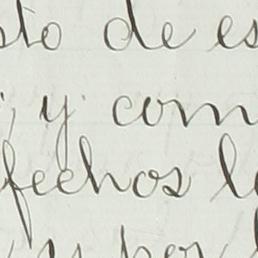 sto de es
; y com
fechos l
por